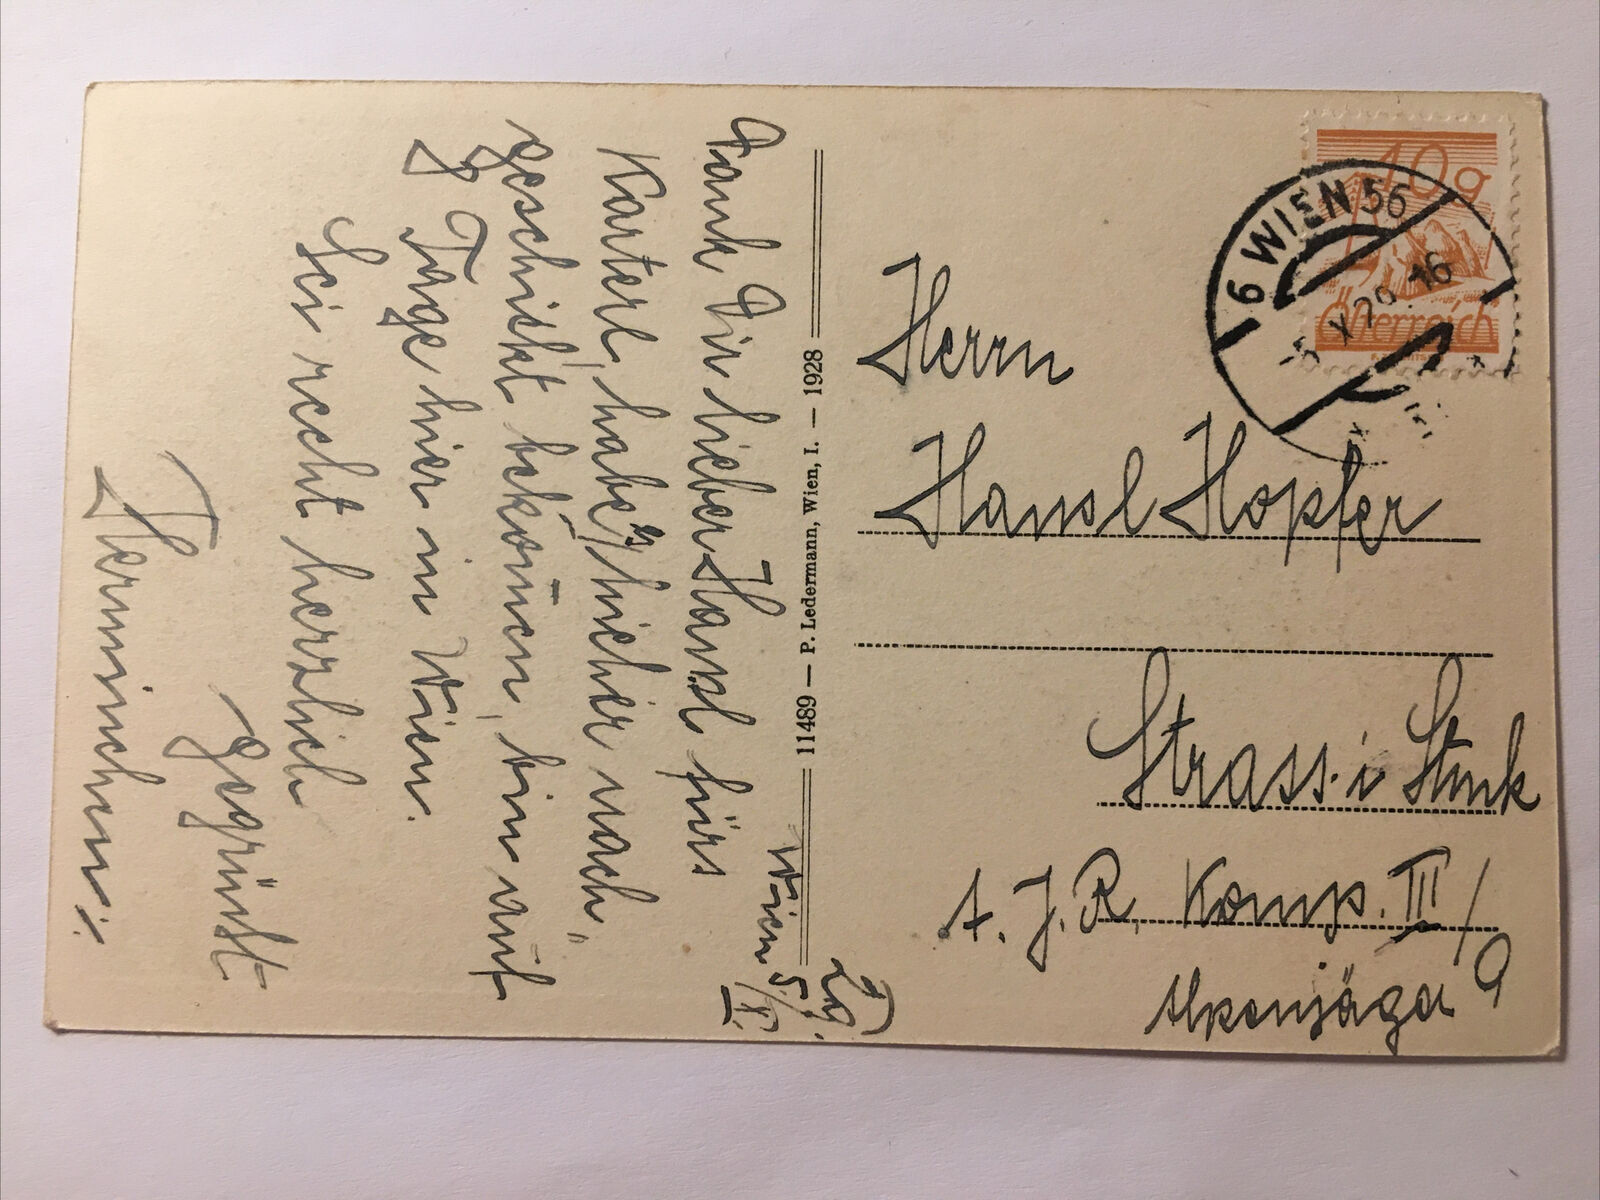 Wien 5/X. 29.
Dank Dir lieber Hansl fürs
Karterl, habe's hieher nach=
geschickt bekom̄en, bin auf
8 Tage hier in Wien.
Sei recht herzlich
gegrüßt
v.
Herminchen:
11489 — P. Ledermann, Wien, I. — 1928
10g
Österreich
6 WIEN 56
-5 X 29. 16
Herrn
Hansl Hopfer
Strass i
A. J. R. Komp. III/
9
Alpenjäger